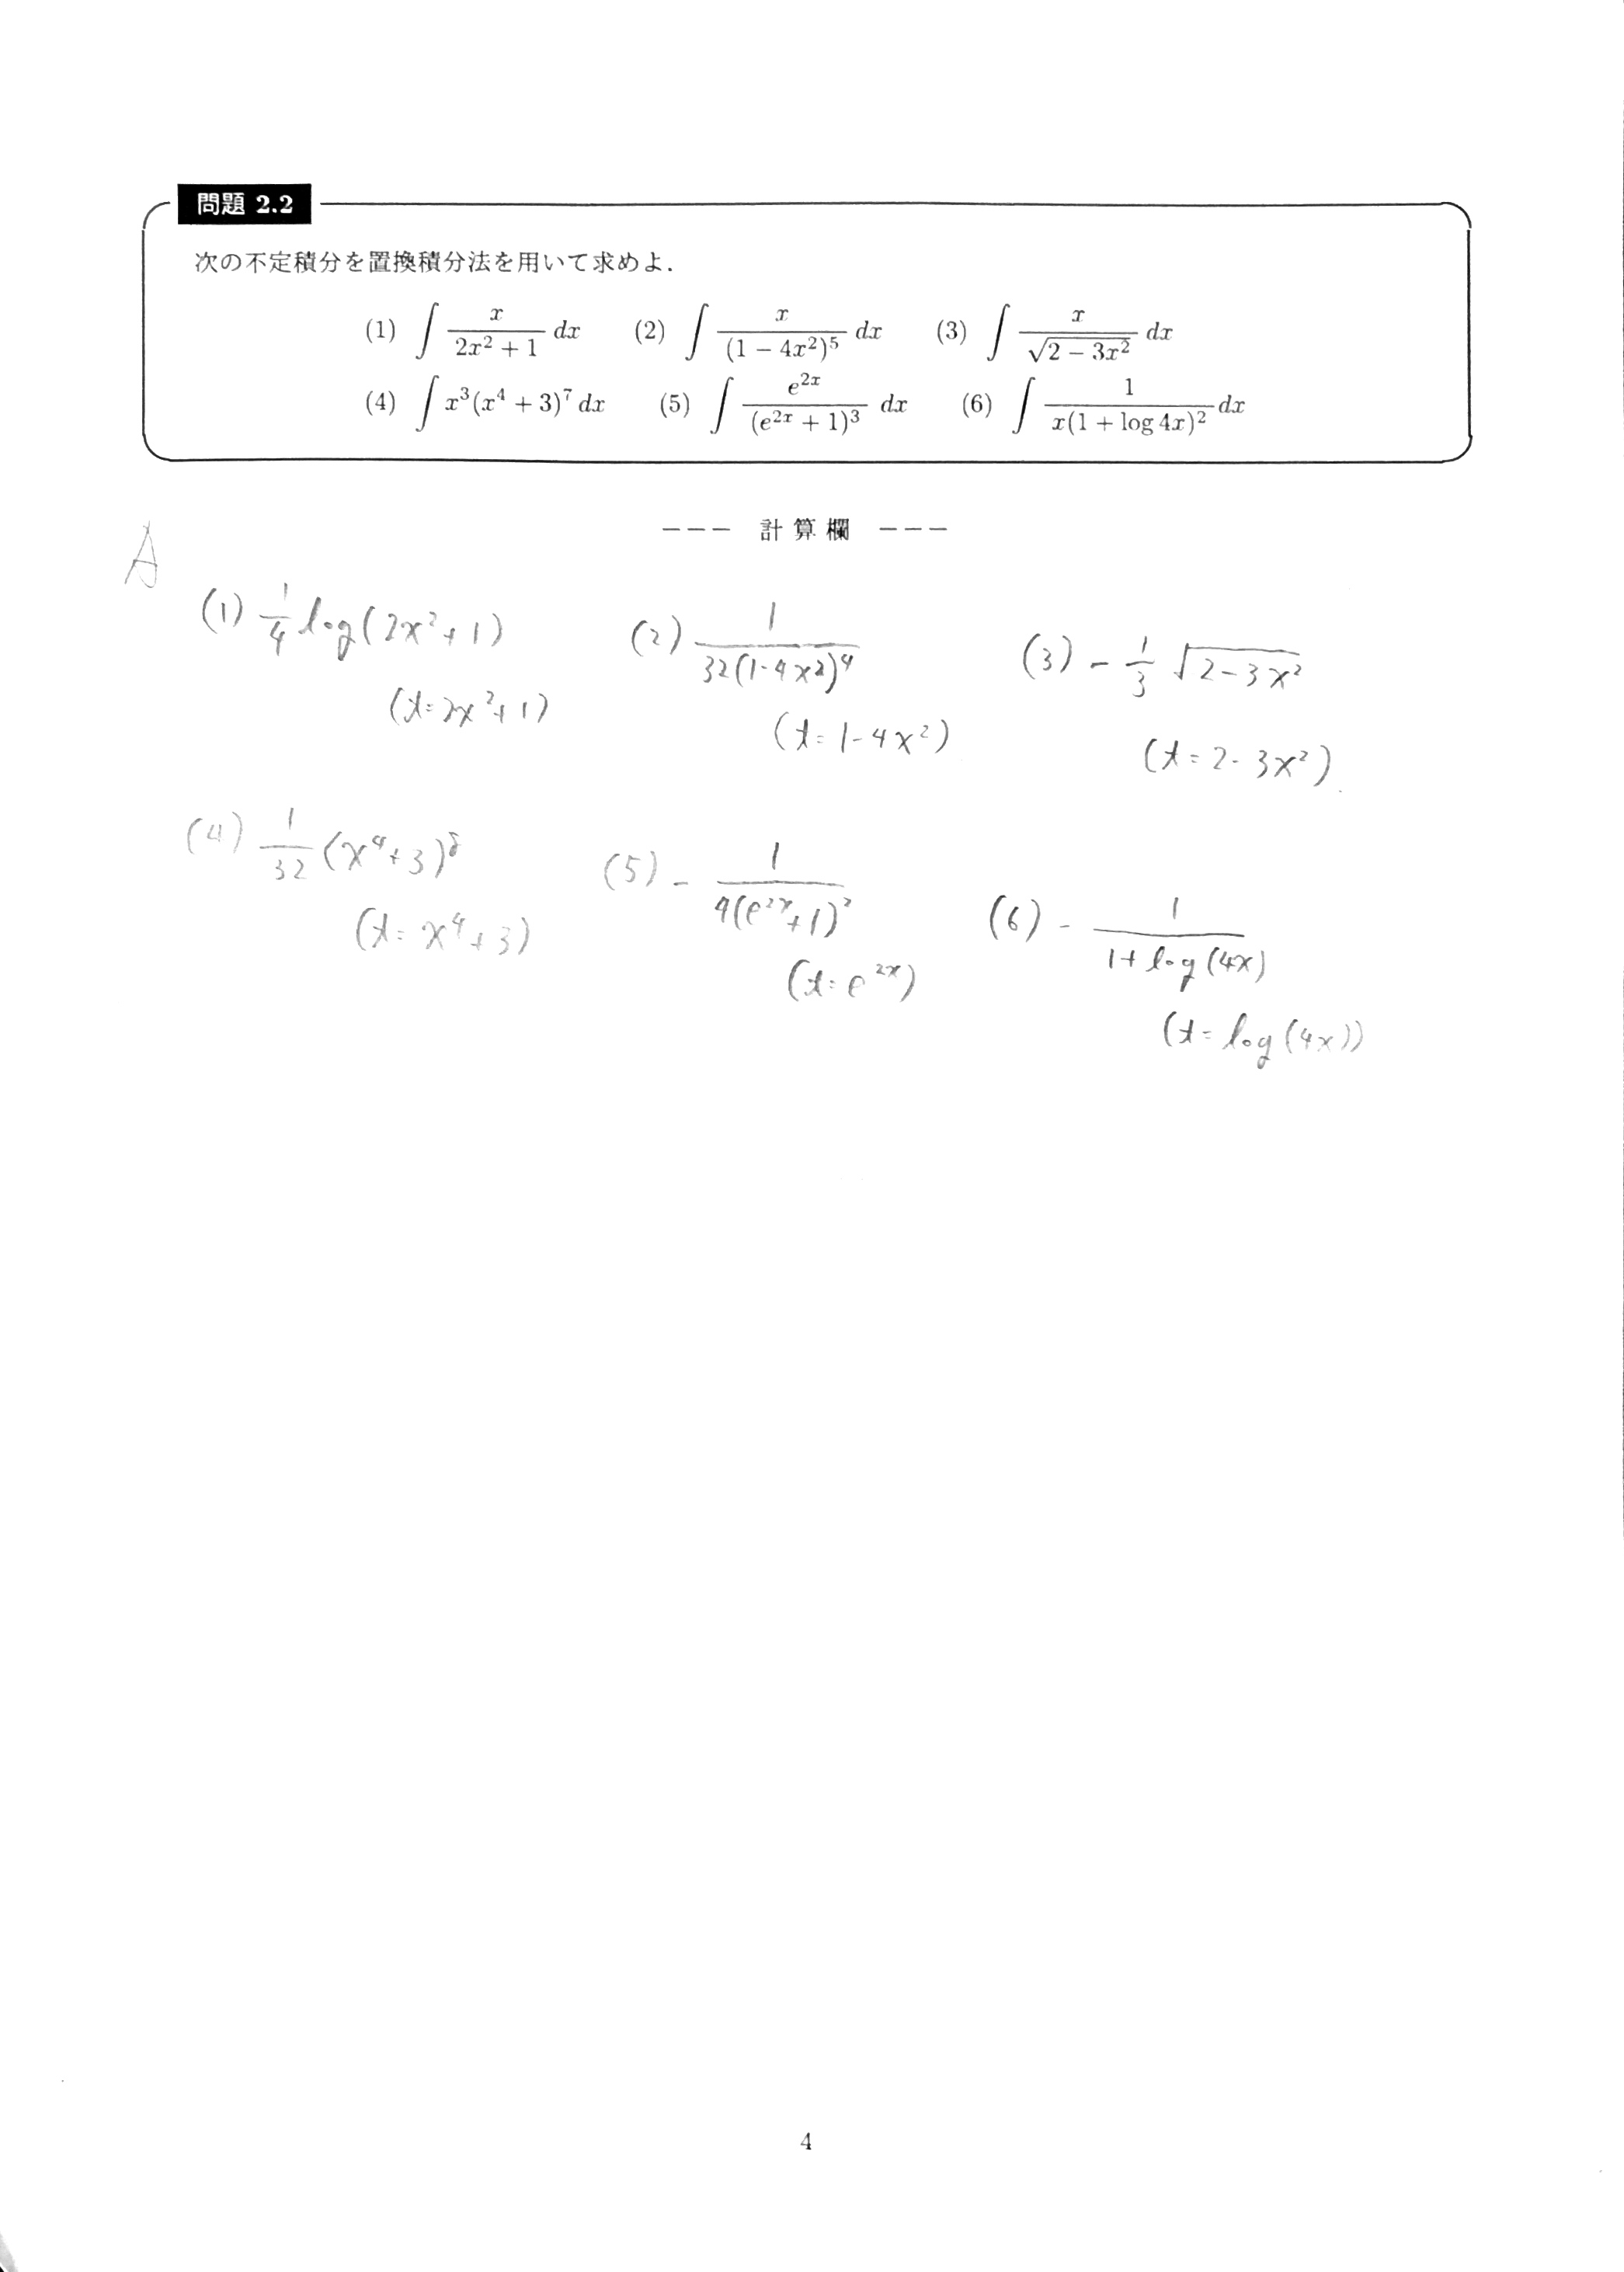 問題 2.2
次の不定積分を置換積分法を用いて求めよ.
(1) ∫ x/(2x² + 1) dx (2) ∫ x/(1 − 4x²)⁵ dx (3) ∫ x/√(2 − 3x²) dx
(4) ∫ x³(x⁴ + 3)⁷ dx (5) ∫ e^{2x}/(e^{2x} + 1)³ dx (6) ∫ 1/(x(1 + log 4x)²) dx
−−− 計算欄 −−−
A
(1) 1/4 log(2x²+1) (2) 1/(32(1-4x2)⁴) (3) − 1/3 √(2−3x²)
(t=2x²+1) (t=1-4x²) (t=2-3x²)
(4) 1/32 (x⁴+3)⁸ (5) − 1/(4(e^{2x}+1)²) (6) − 1/(1+log(4x))
(t=x⁴+3) (t=e^{2x}) (t=log(4x))
4